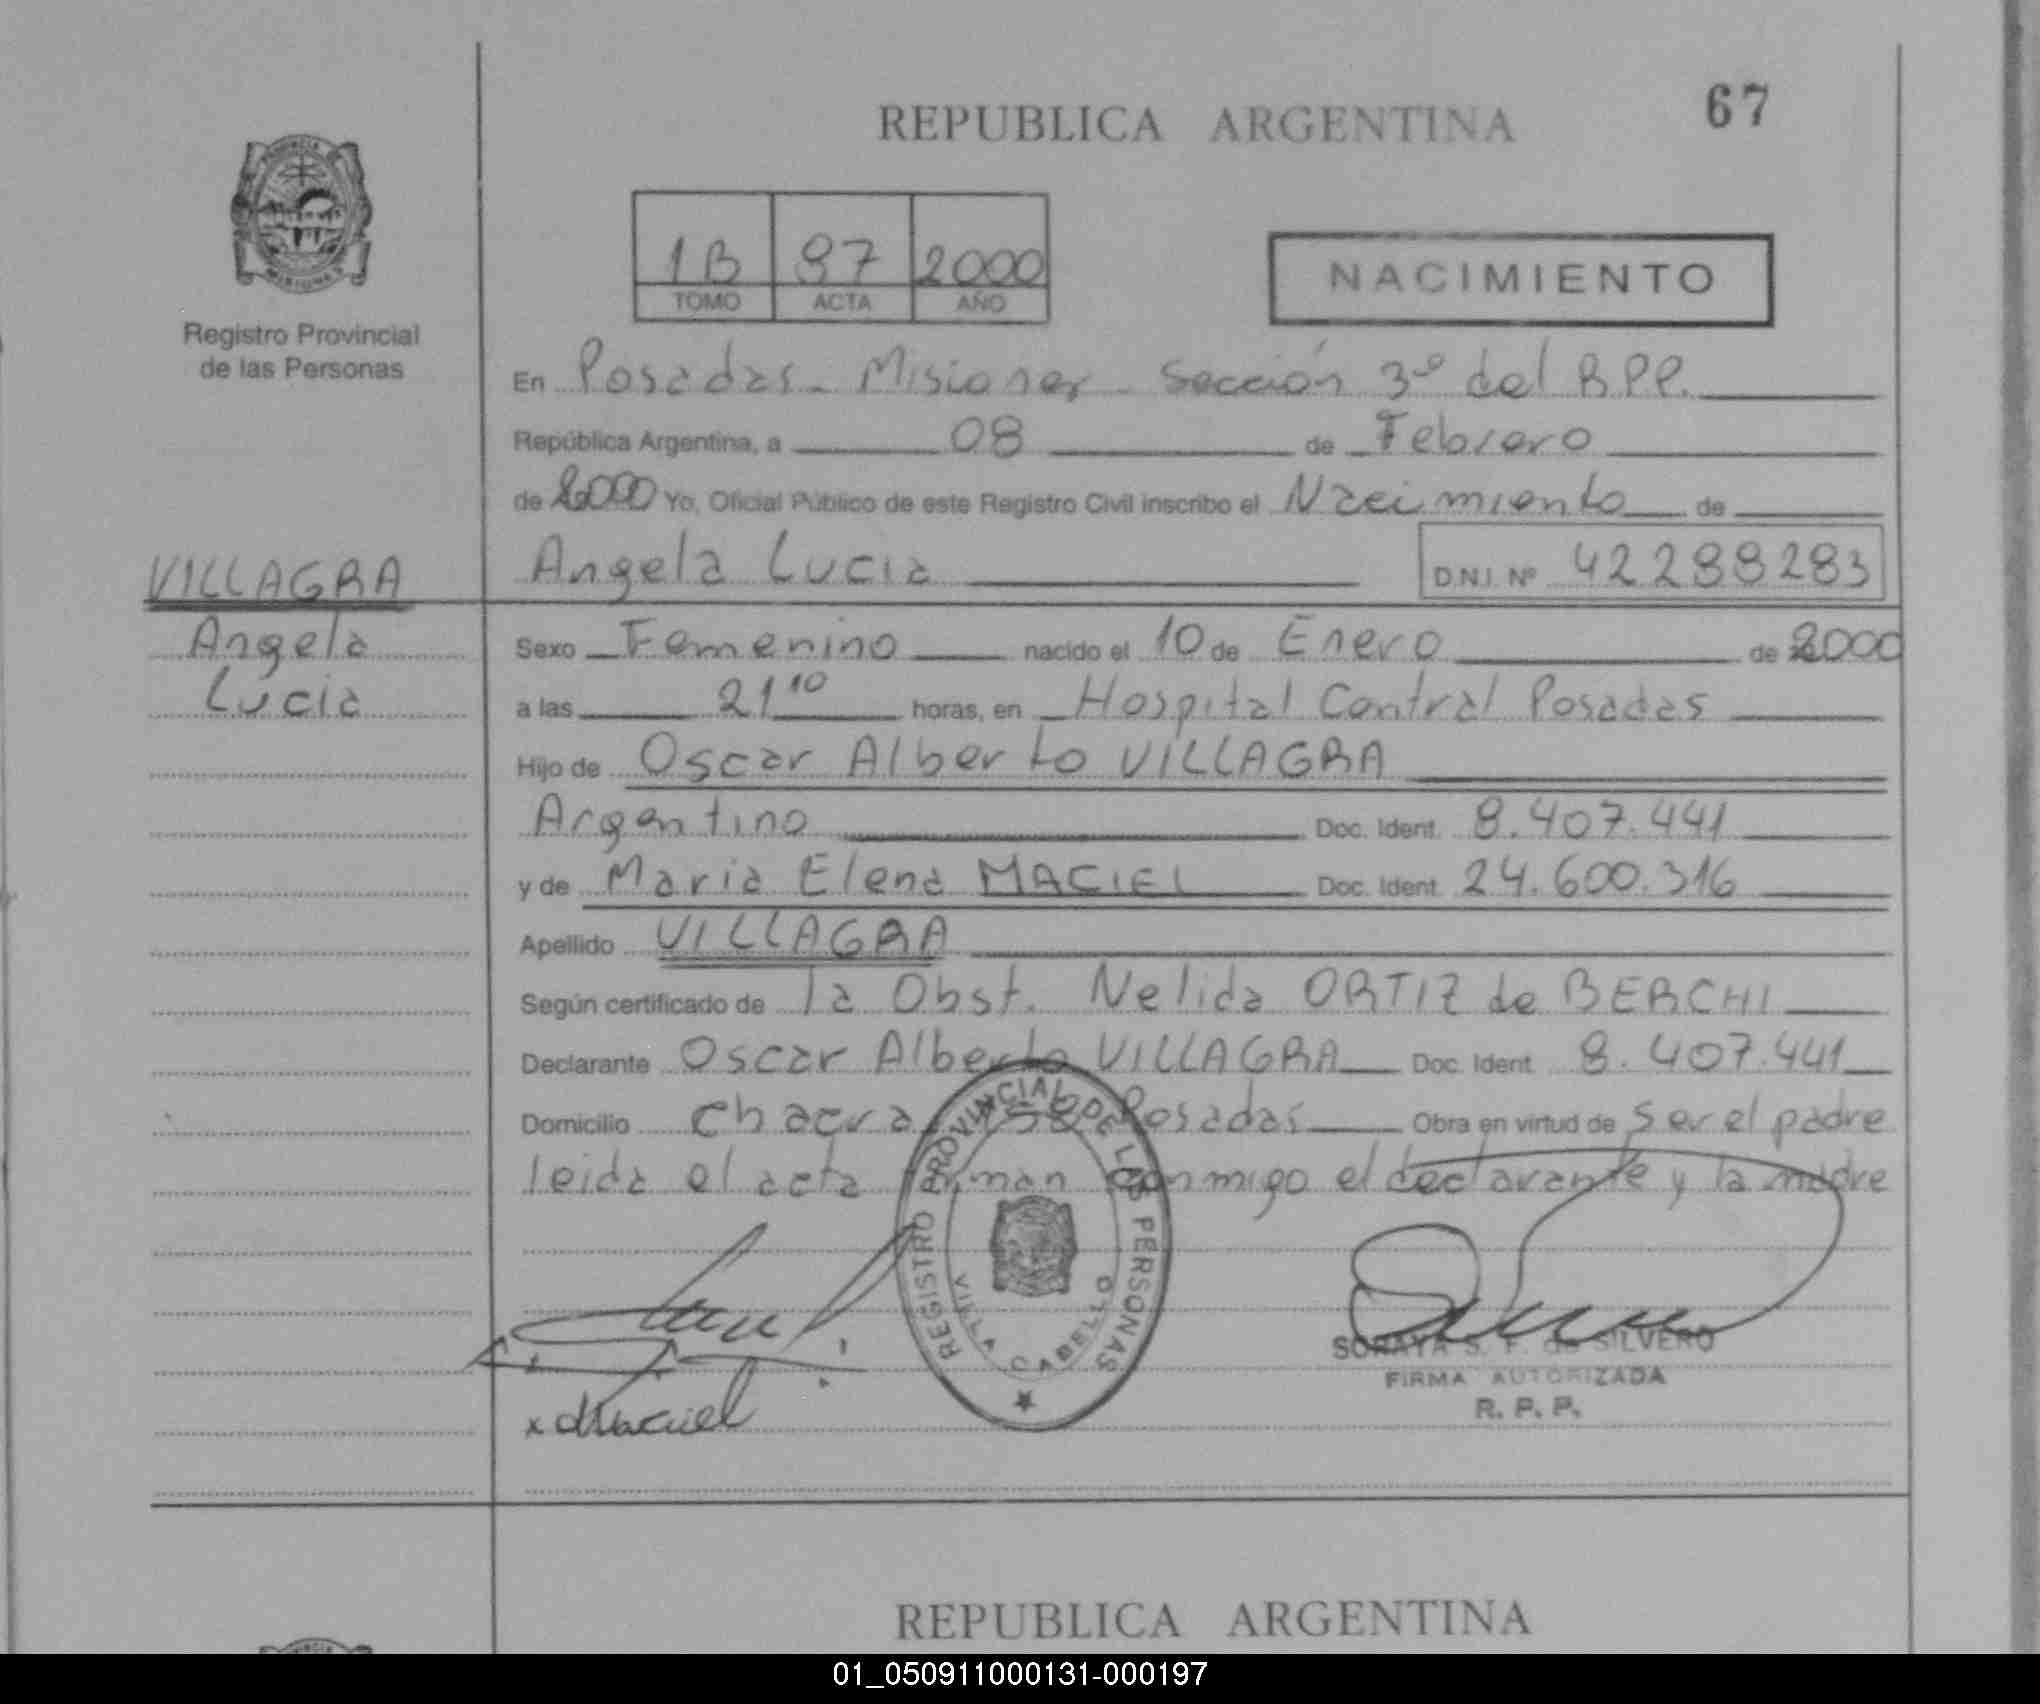 67
REPUBLICA ARGENTINA
1B 97 2000
TOMO ACTA AÑO
NACIMIENTO
Registro Provincial
de las Personas
En Posadas - Misiones - Sección 3º del R.P.P.
República Argentina, a 08 de Febrero
de 2000 Yo, Oficial Público de este Registro Civil inscribo el Nacimiento de
VILLAGRA Angela Lucia D.N.I. Nº 42288283
Angela Sexo Femenino nacido el 10 de Enero de 2000
Lucia a las 21 10 horas, en Hospital Central Posadas
Hijo de Oscar Alberto VILLAGRA
Argentino Doc. Ident. 8.407.441
y de Maria Elena MACIEL Doc. Ident. 24.600.316
Apellido VILLAGRA
Según certificado de la Obst. Nelida ORTIZ de BERCHI
Declarante Oscar Alberto VILLAGRA Doc. Ident. 8.407.441
Domicilio Chacra Posadas Obra en virtud de ser el padre
leida el acta firman conmigo el declarante y la madre
REGISTRO PROVINCIAL DE LAS PERSONAS
VILLA CABELLO
x Maciel
SORAYA S. F. de SILVERO
FIRMA AUTORIZADA
R. P. P.
REPUBLICA ARGENTINA
01_050911000131-000197